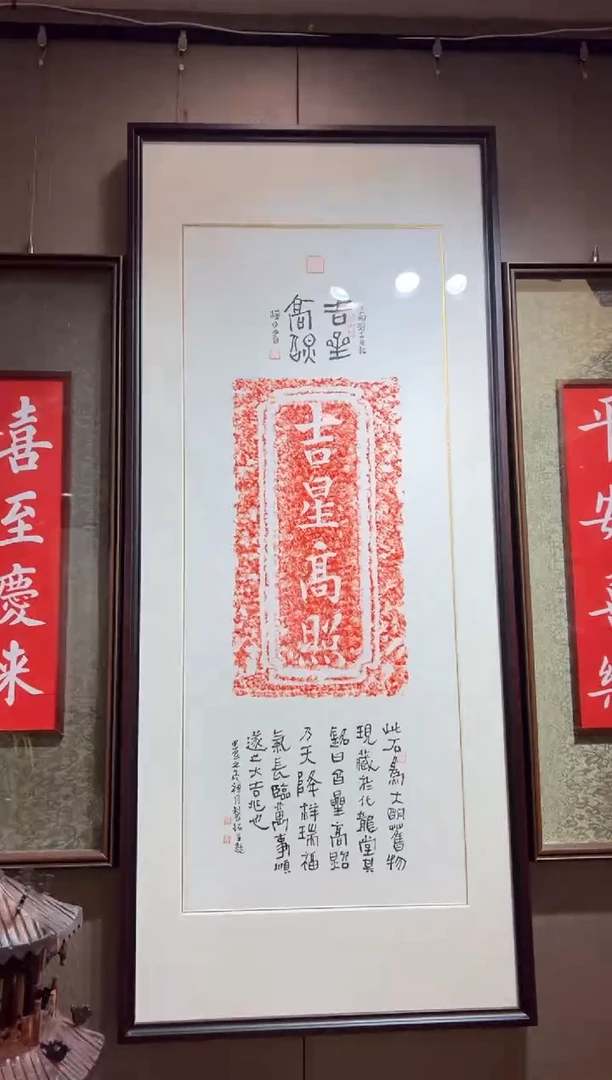 平安喜樂
吉星
高照
吉星高照
此石為大明舊物
現藏於化龍堂其
銘曰吉星高照
乃天降祥瑞福
氣長臨萬事順
遂之大吉兆也
喜至慶来